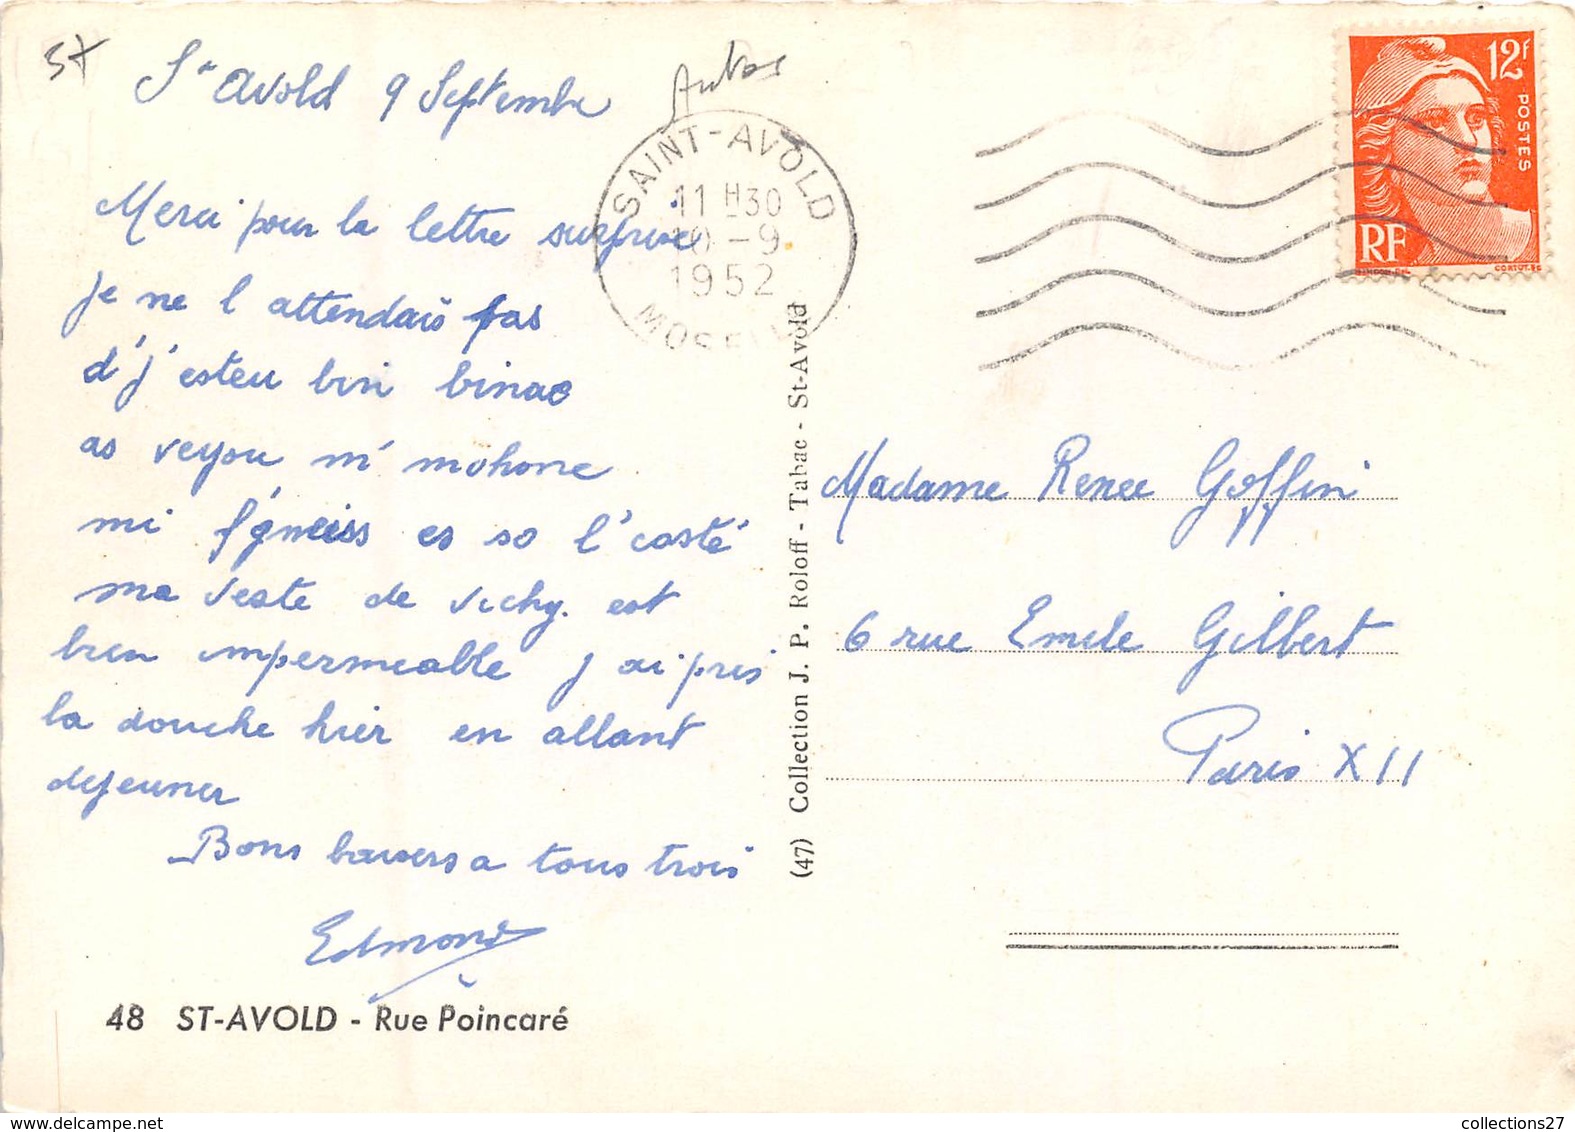 St Avold 9 Septembre
Merci pour la lettre surprise
je ne l attendais pas
d'j'esteu bin binac
as veyou m' mohone
mi f'gneiss es so l'costé
ma veste de vichy. est
bien impermeable j ai pris
la douche hier en allant
dejeuner
Bons baisers a tous trois
Edmond
48 ST-AVOLD - Rue Poincaré
SAINT-AVOLD
11 H30
10-9
1952
MOSELLE
(47) Collection J. P. Roloff - Tabac - St-Avold
12F
POSTES
RF
Madame Renee Goffin
6 rue Emile Gilbert
Paris XII
collections27